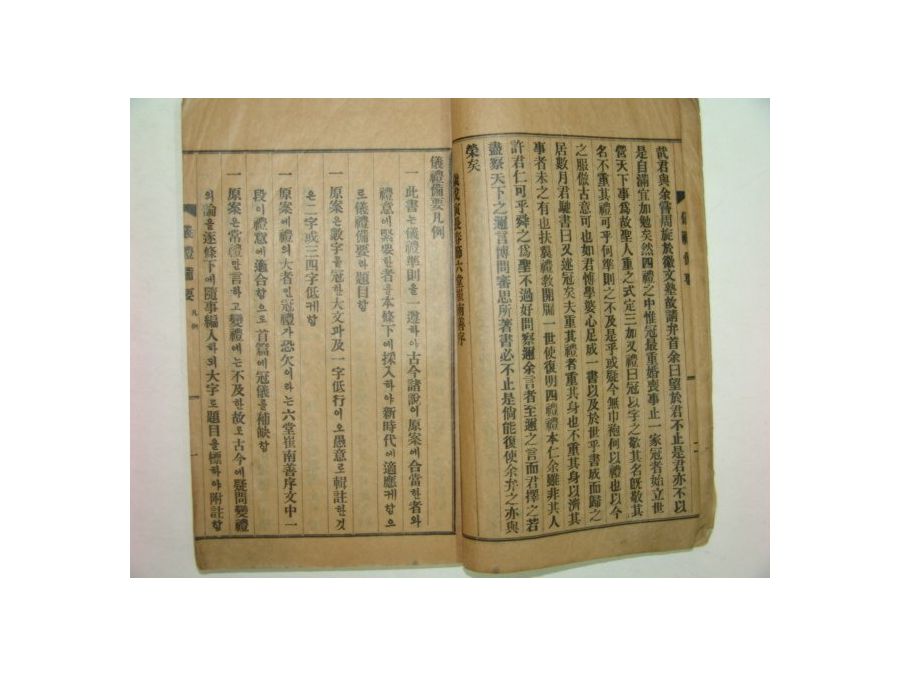 武君與余嘗周旋於徽文塾故請弁首余曰望於君不止是君亦不以
是自滿宜加勉矣然四禮之中惟冠最重婚喪事止一家冠者始立世
營天下事爲故聖人重之式定三加又禮曰冠以字之敬其名旣敬其
名不重其禮可乎何準則之不及是乎或疑今無巾袍何以禮也以今
之服倣古意可也如君博學婆心足成一書以及於世乎書成而歸之
居數月君馳書曰又述冠矣大重其禮者重其身也不重其身以濟其
事者未之有也扶翼禮敎開牖一世使復明四禮禮本仁余雖非其人
許君仁可乎舜之爲聖不過好問察邇余言者至邇之言而君擇之若
盡察天下之邇言博問審思所著書必不止是倘能復使余弁之亦與
榮矣
六堂崔南善序
儀禮備要凡例
一 此書는儀禮準則을一遵하야古今諸說이原案에合當한者와
禮意에緊要한者을本條下에採入하야新時代에適應케함으
로儀禮備要라題目함
一 原案은數字을冠한大文과及一字低行이오愚意로輯註한것
은二字或三四字低케함
一 原案에禮의大者인冠禮가恐欠이라는六堂崔南善序文中一
段이禮意에適合함으로首篇에冠儀을補缺함
一 原案은常禮만言하고變禮에는不及한故로古今에疑問變禮
의論을逐條下에隨事編入하되大字로題目을標하야附註함
儀禮備要
凡例
一